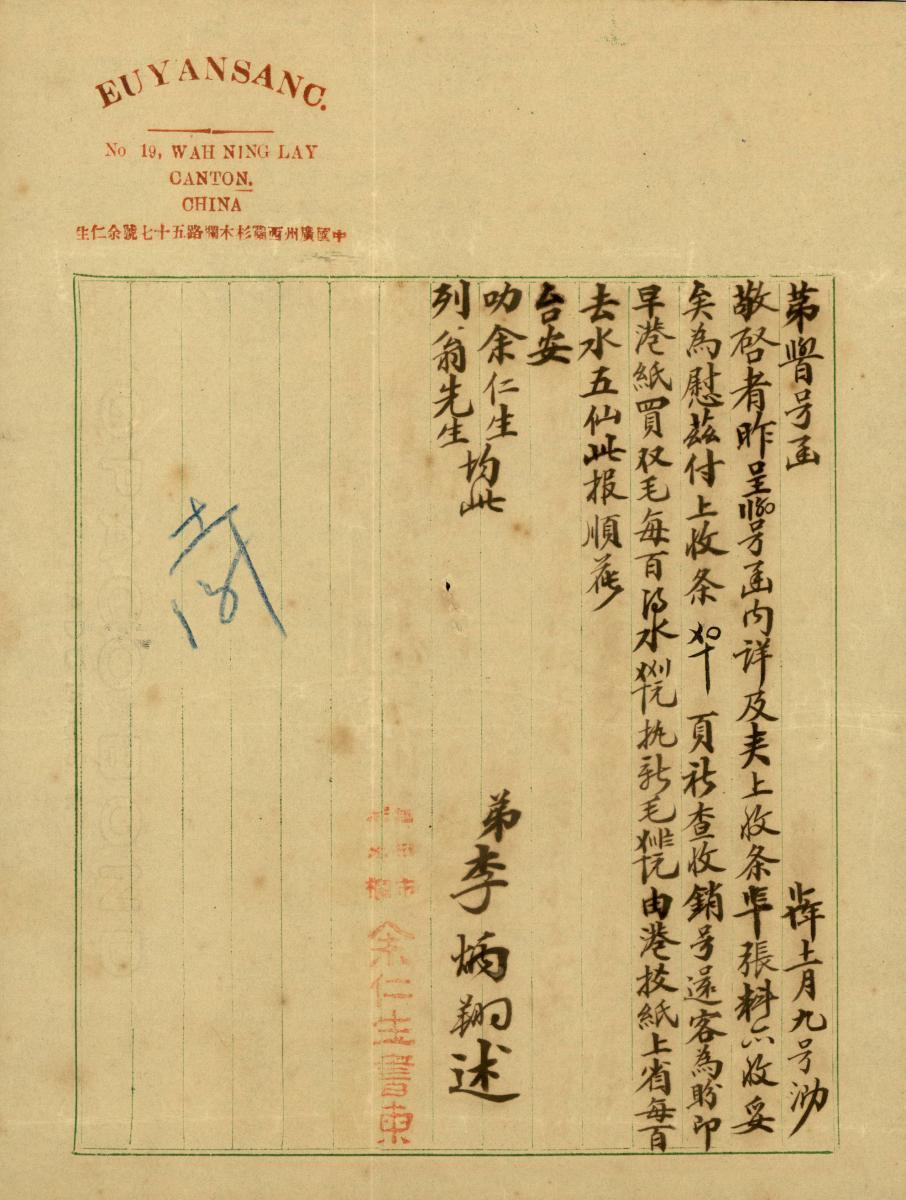 EU YAN SANG.
No 19, WAH NING LAY
CANTON.
CHINA
中國廣州西關杉木欄路五十七號余仁生
第 号函
年十一月九号泐
敬啓者昨呈 号函内詳及夹上收条 張料亦收妥
矣為慰茲付上收条 頁祈查收銷号还客為盼即
早港紙買双毛每百 水 执新毛 由港投紙上省每百
去水五仙此报順花
台安
叻余仁生
列翁先生 均此
弟李炳翔述
余仁生書柬